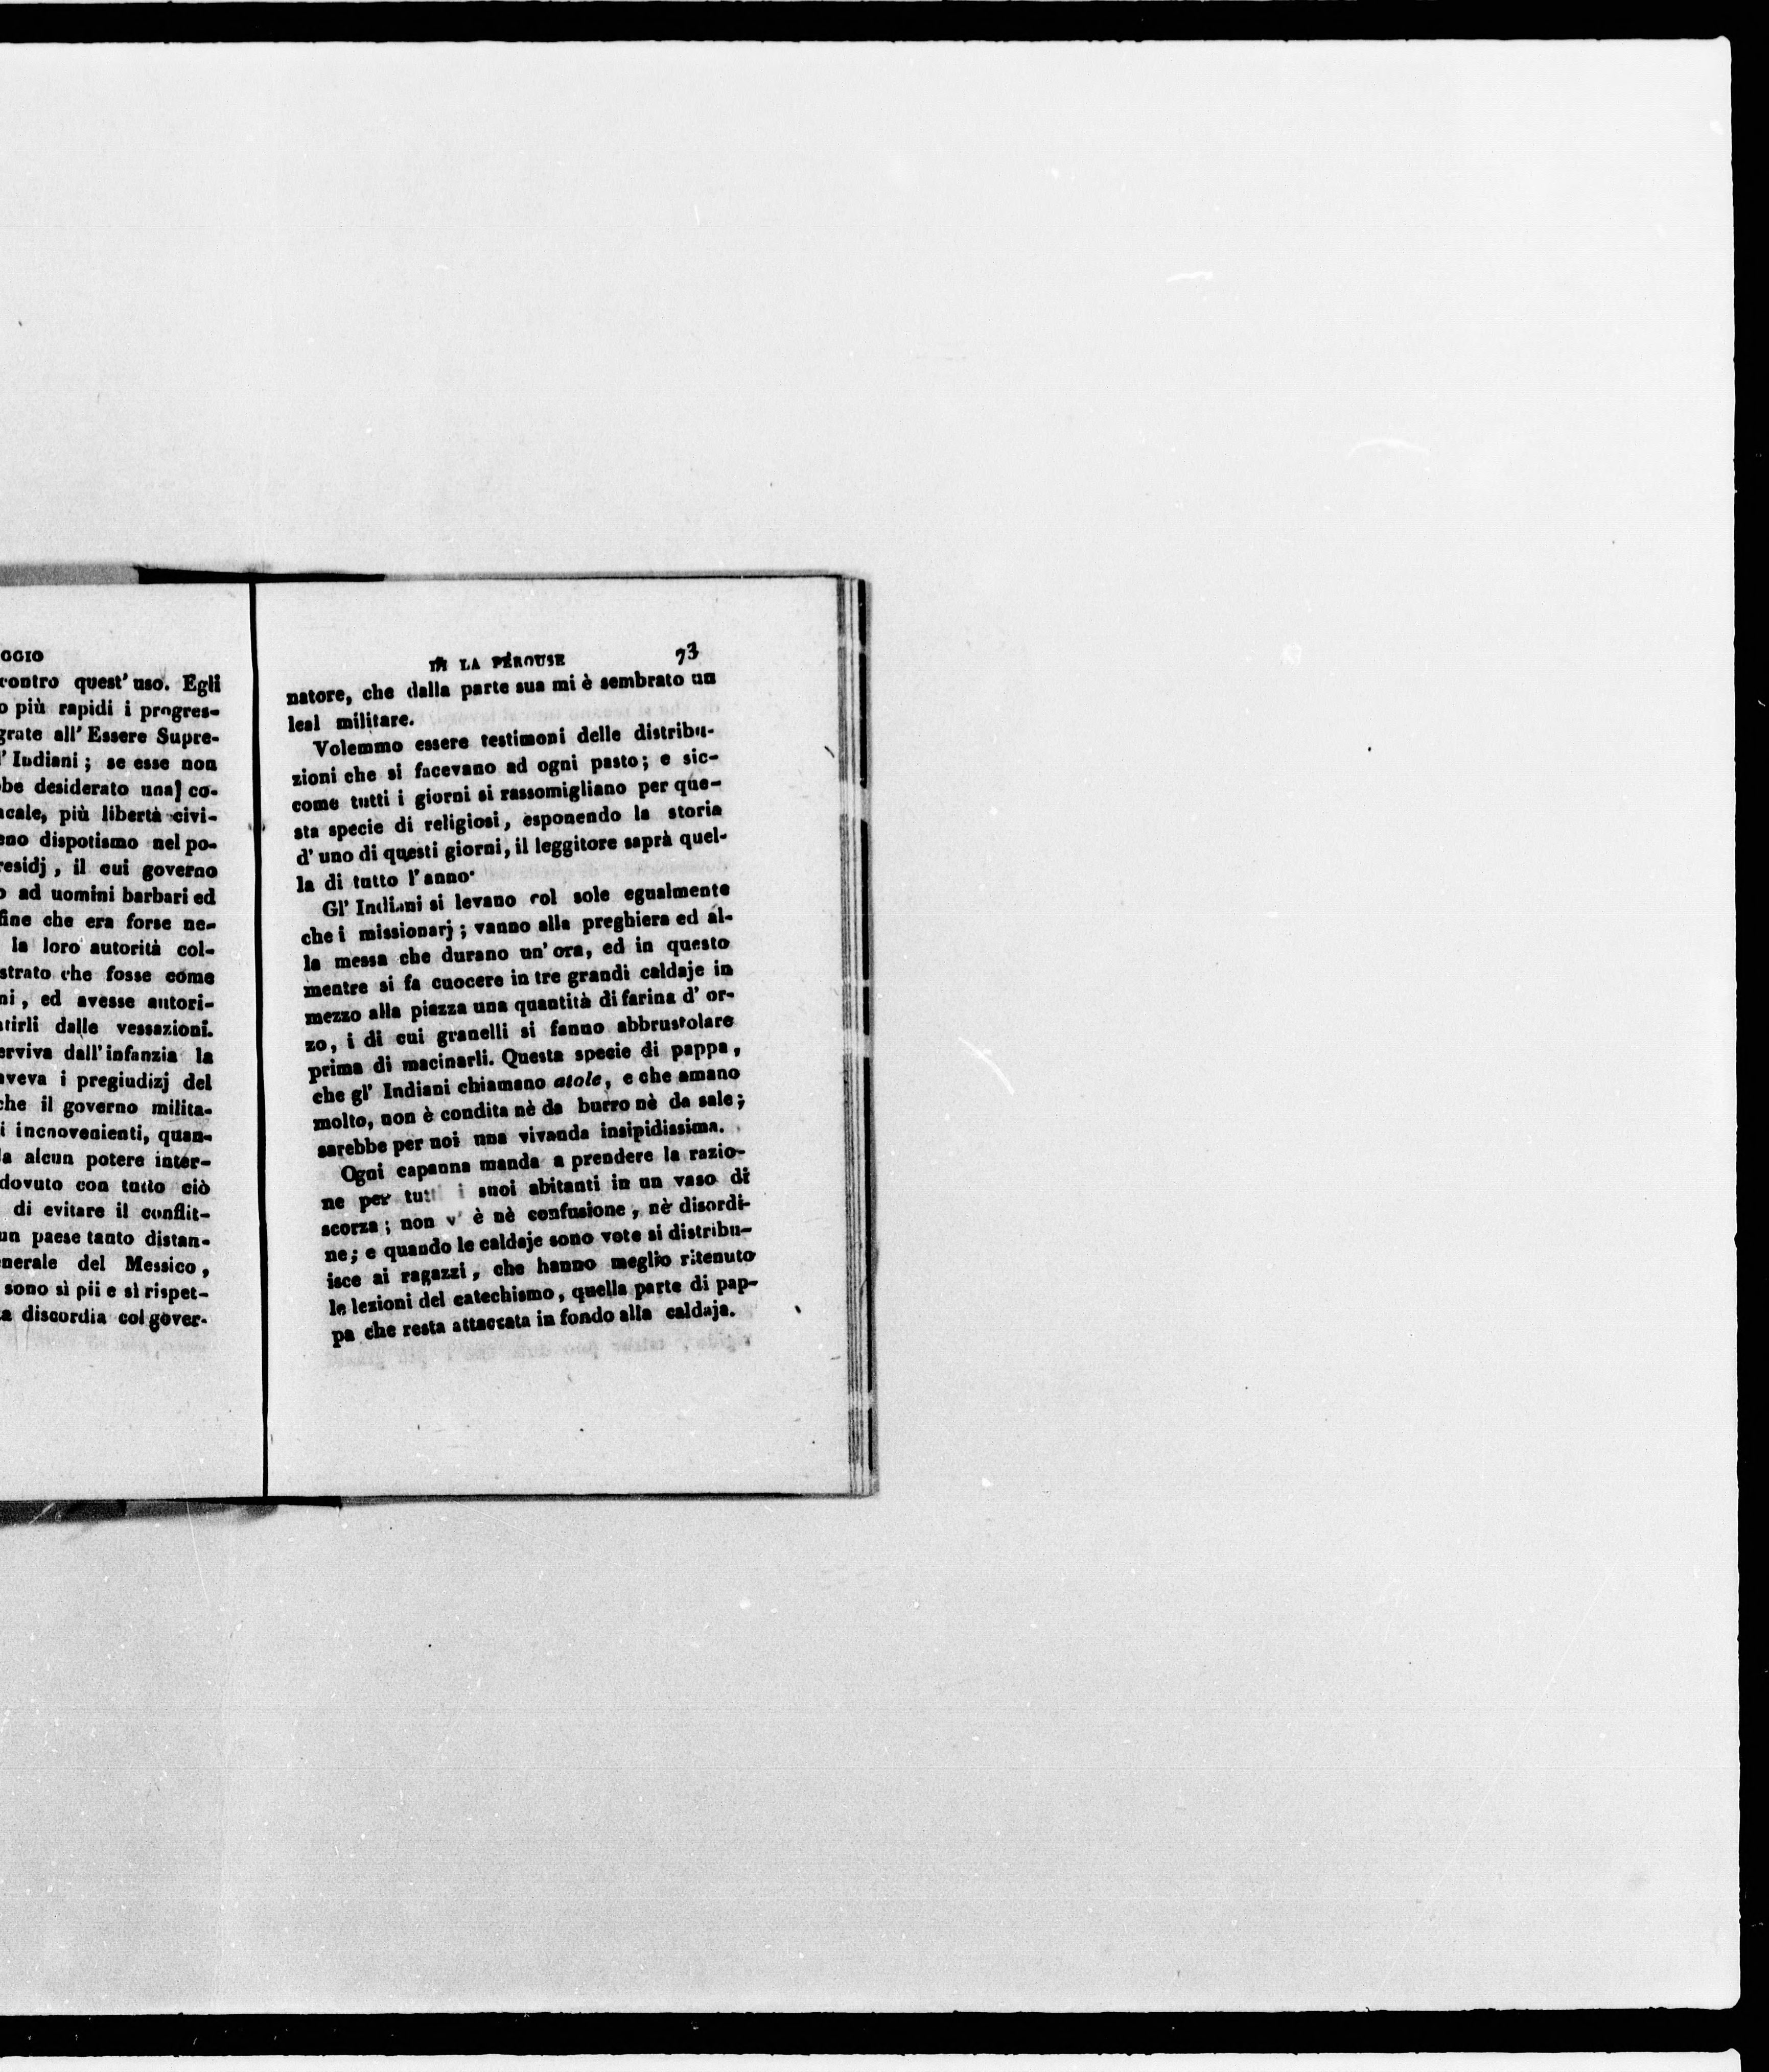 GGIO
contro quest' uso. Egli
o più rapidi i progres-
grate all' Essere Supre-
l' Indiani; se esse non
bbe desiderato una] co-
acale, più libertà civi-
eno dispotismo nel po-
residj, il cui governo
o ad uomini barbari ed
fine che era forse ne-
la loro autorità col-
strato che fosse come
ni, ed avesse autori-
ntirli dalle vessazioni.
erviva dall' infanzia la
aveva i pregiudizj del
che il governo milita-
i incnovenienti, quan-
la alcun potere inter-
dovuto con tutto ciò
di evitare il conflit-
un paese tanto distan-
enerale del Messico,
sono sì pii e sì rispet-
a discordia col gover-
DI LA PÉROUSE 73
natore, che dalla parte sua mi è sembrato un
leal militare.
Volemmo essere testimoni delle distribu-
zioni che si facevano ad ogni pasto; e sic-
come tutti i giorni si rassomigliano per que-
sta specie di religiosi, esponendo la storia
d' uno di questi giorni, il leggitore saprà quel-
la di tutto l' anno.
Gl' Indiani si levano col sole egualmente
che i missionarj; vanno alla preghiera ed al-
la messa che durano un' ora, ed in questo
mentre si fa cuocere in tre grandi caldaje in
mezzo alla piazza una quantità di farina d' or-
zo, i di cui granelli si fanno abbrustolare
prima di macinarli. Questa specie di pappa,
che gl' Indiani chiamano atole, e che amano
molto, non è condita nè da burro nè da sale;
sarebbe per noi una vivanda insipidissima.
Ogni capanna manda a prendere la razio-
ne per tutti i suoi abitanti in un vaso di
scorza; non v' è nè confusione, nè disordi-
ne; e quando le caldaje sono vote si distribu-
isce ai ragazzi, che hanno meglio ritenuto
le lezioni del catechismo, quella parte di pap-
pa che resta attaccata in fondo alla caldaja.